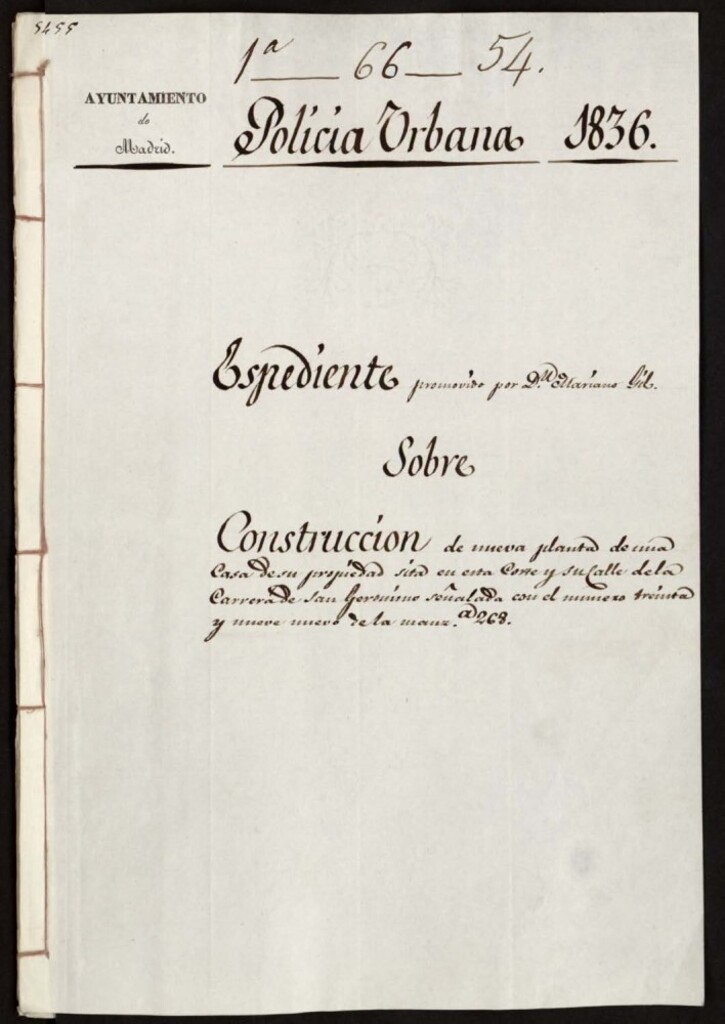 5455
1ª 66 54.
AYUNTAMIENTO
de
Madrid.
Policia Urbana 1836.
Espediente promovido por Dⁿ Mariano Gil.
Sobre
Construccion de nueva planta de una
Casa de su propiedad sita en esta Corte y su Calle de la
Carrera de San Geronimo señalada con el numero treinta
y nueve nuevo de la manz.ª 268.